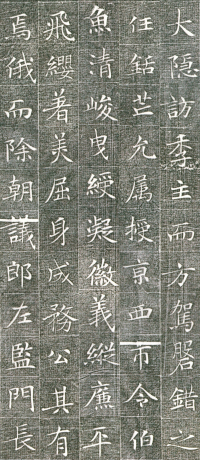 大隱訪季主而方駕磐錯之
任銛芒允属授京西市令伯
魚清峻曳綬凝徽義縱廉平
飛纓著美屈身成務公其有
焉俄而除朝議郎左監門長